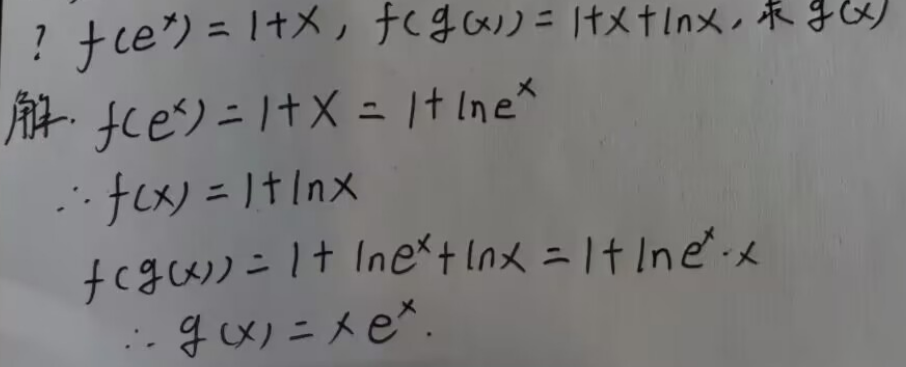 ? f(eˣ) = 1+x, f(g(x)) = 1+x+lnx, 求 g(x)
解. f(eˣ) = 1+x = 1+lneˣ
∴ f(x) = 1+lnx
f(g(x)) = 1+ lneˣ+lnx = 1+lneˣ·x
∴ g(x) = xeˣ.